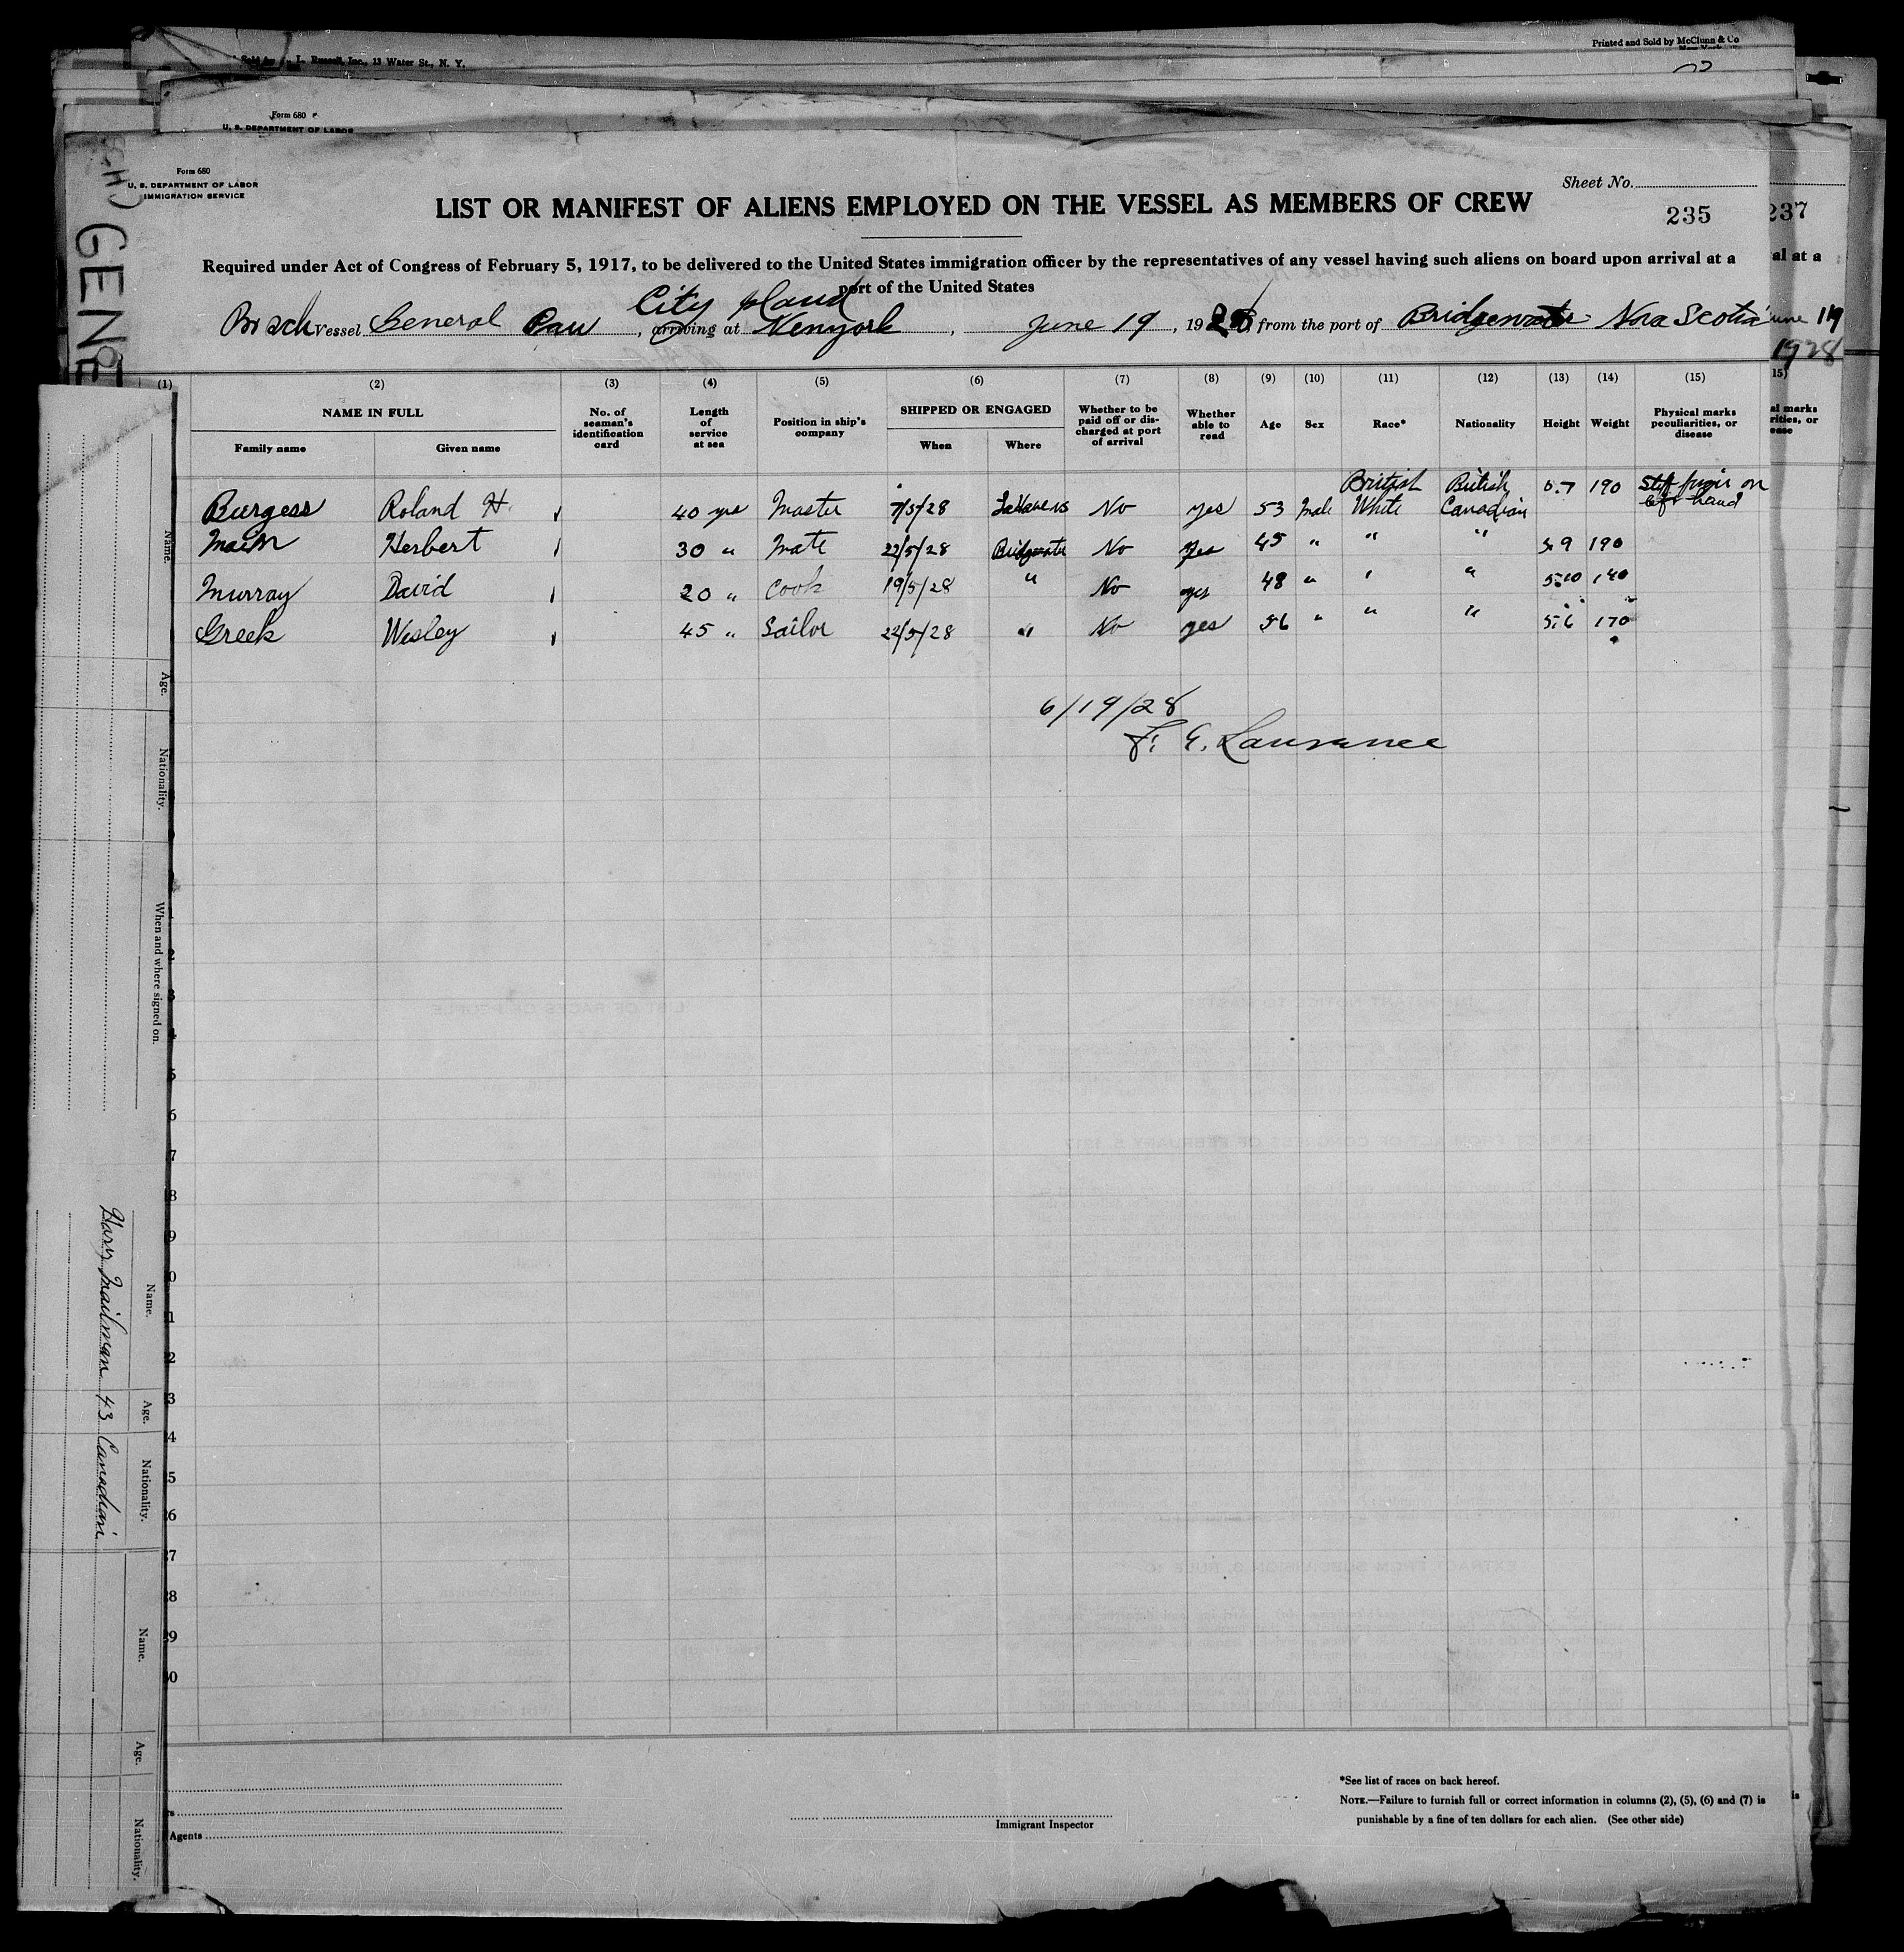 Printed and Sold by McClunn & Co
L. Russell, Inc., 13 Water St., N. Y.
Form 680
U. S. DEPARTMENT OF LABOR
Form 680
U. S. DEPARTMENT OF LABOR
IMMIGRATION SERVICE
Sheet No.
LIST OR MANIFEST OF ALIENS EMPLOYED ON THE VESSEL AS MEMBERS OF CREW
235
237
Required under Act of Congress of February 5, 1917, to be delivered to the United States immigration officer by the representatives of any vessel having such aliens on board upon arrival at a
al at a
port of the United States
City Island
Vessel General , arriving at Newyork , June 19 , 1928, from the port of Bridgewater Nova Scotia
1928
GENE
(1) (2) (3) (4) (5) (6) (7) (8) (9) (10) (11) (12) (13) (14) (15) 15)
NAME IN FULL
Family name Given name
No. of seaman's identification card
Length of service at sea
Position in ship's company
SHIPPED OR ENGAGED
When Where
Whether to be paid off or discharged at port of arrival
Whether able to read
Age Sex Race* Nationality Height Weight
Physical marks peculiarities, or disease
al marks
rities, or
ease
Burgess Roland H. 40 yrs Master 7/5/28 LaHave NS No yes 53 Male British White British Canadian 5.7 190 left hand
Herbert 30 " Mate 22/5/28 Bridgewater No yes 45 " " " 5.9 190
Murray David 20 " Cook 19/5/28 " No yes 48 " " " 5.10 140
Greek Wesley 45 " Sailor 22/5/28 " No yes 56 " " " 5.6 170
6/19/28
F. E. Laurance
Name.
Age.
Nationality.
When and where signed on.
Name.
Age.
Nationality.
Harry Mailman 43 Canadian
Name.
Age.
Nationality.
2
3
4
5
6
7
8
9
0
1
2
3
4
5
6
7
8
9
0
Agents
Immigrant Inspector
*See list of races on back hereof.
NOTE.—Failure to furnish full or correct information in columns (2), (5), (6) and (7) is
punishable by a fine of ten dollars for each alien. (See other side)